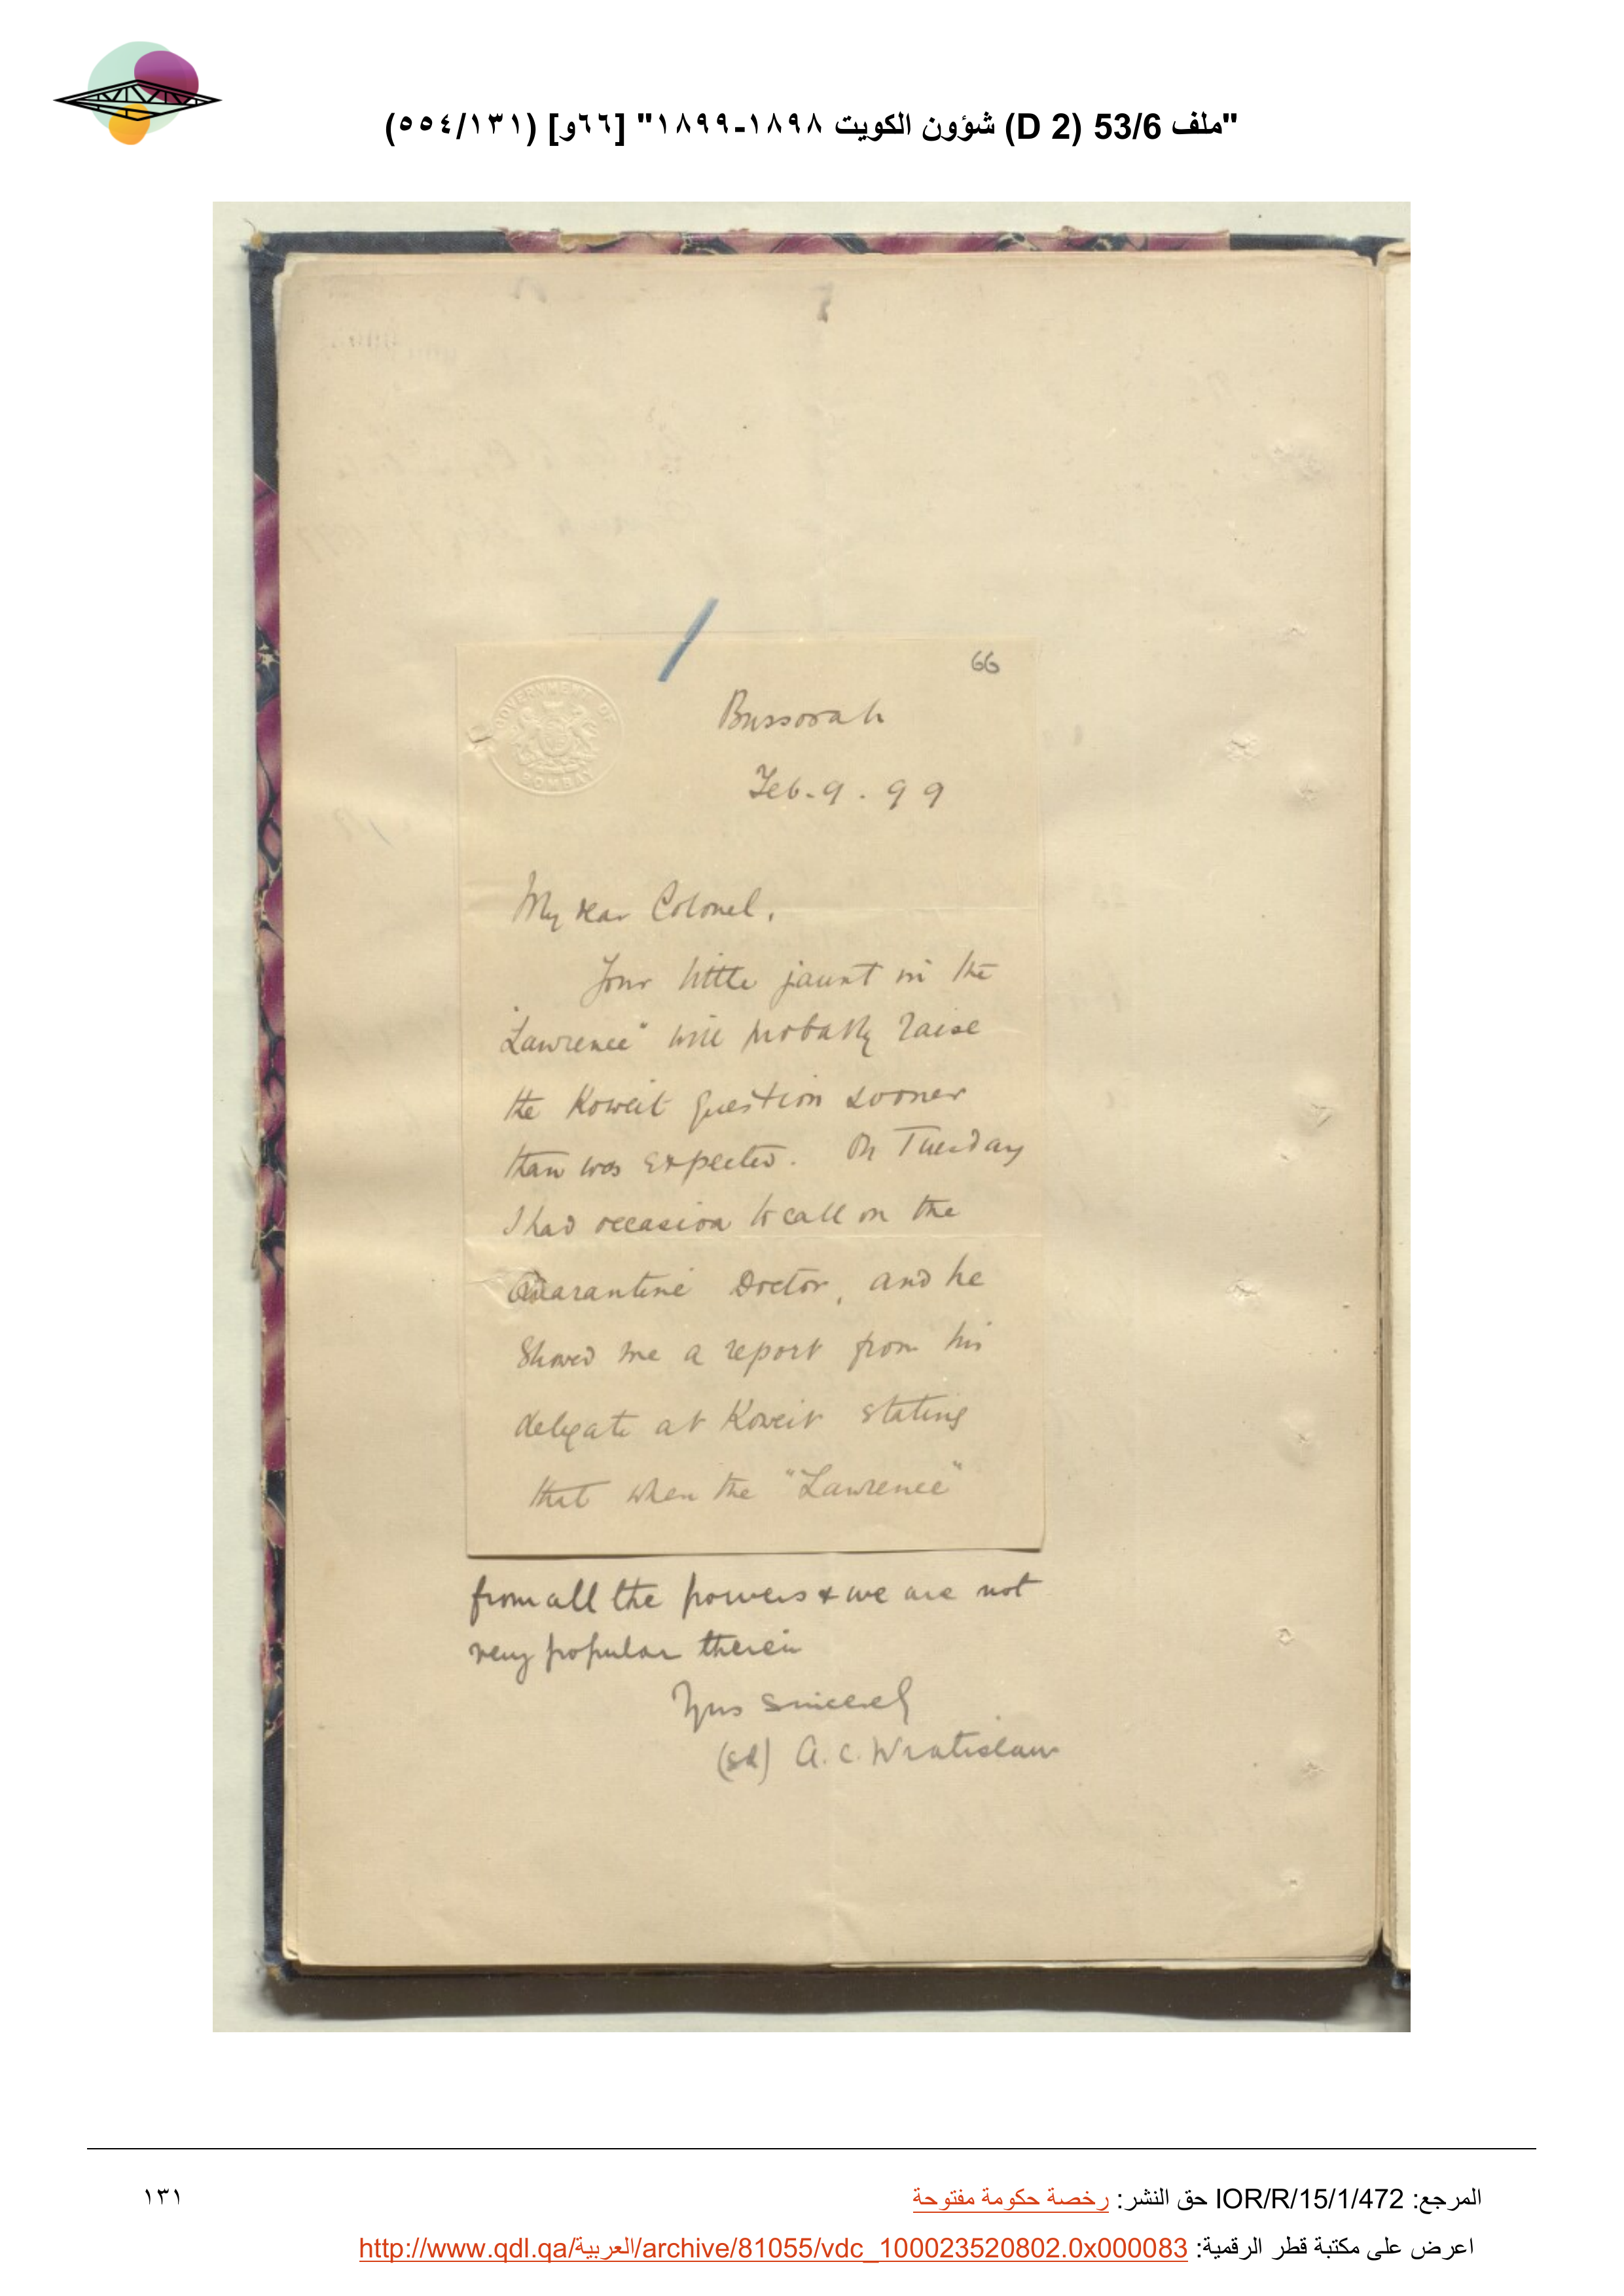 "ملف 53/6 (D 2) شؤون الكويت ١٨٩٨-١٨٩٩" [٦٦و] (٥٥٤/١٣١)
66
GOVERNMENT OF BOMBAY
Bussorah
Feb. 9. 99
My dear Colonel,
Your little jaunt in the
"Lawrence" will probably raise
the Koweit question sooner
than was expected. On Tuesday
I had occasion to call on the
Quarantine Doctor, and he
showed me a report from his
delegate at Koweit stating
that when the "Lawrence"
from all the powers & we are not
very popular therein
Yrs sincerely
(sd) A. C. Wratislaw
المرجع: IOR/R/15/1/472 حق النشر: رخصة حكومة مفتوحة
١٣١
اعرض على مكتبة قطر الرقمية: http://www.qdl.qa/العربية/archive/81055/vdc_100023520802.0x000083